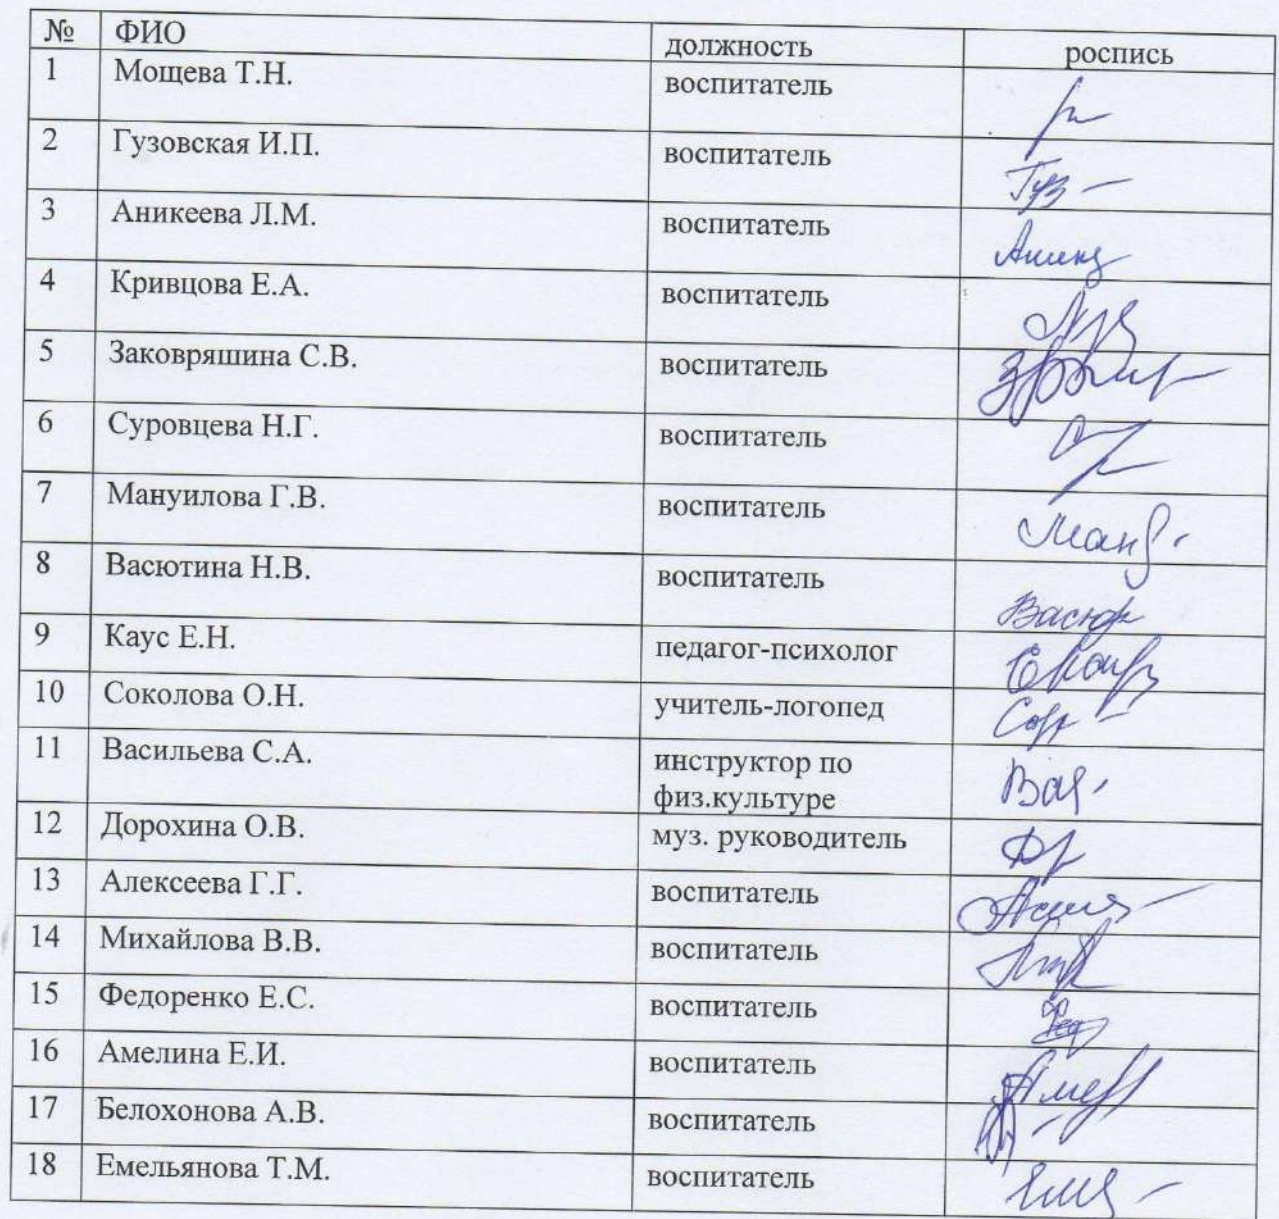 № ФИО должность роспись
1 Мощева Т.Н. воспитатель
2 Гузовская И.П. воспитатель
3 Аникеева Л.М. воспитатель
4 Кривцова Е.А. воспитатель
5 Заковряшина С.В. воспитатель
6 Суровцева Н.Г. воспитатель
7 Мануилова Г.В. воспитатель
8 Васютина Н.В. воспитатель
9 Каус Е.Н. педагог-психолог
10 Соколова О.Н. учитель-логопед
11 Васильева С.А. инструктор по
физ.культуре
12 Дорохина О.В. муз. руководитель
13 Алексеева Г.Г. воспитатель
14 Михайлова В.В. воспитатель
15 Федоренко Е.С. воспитатель
16 Амелина Е.И. воспитатель
17 Белохонова А.В. воспитатель
18 Емельянова Т.М. воспитатель